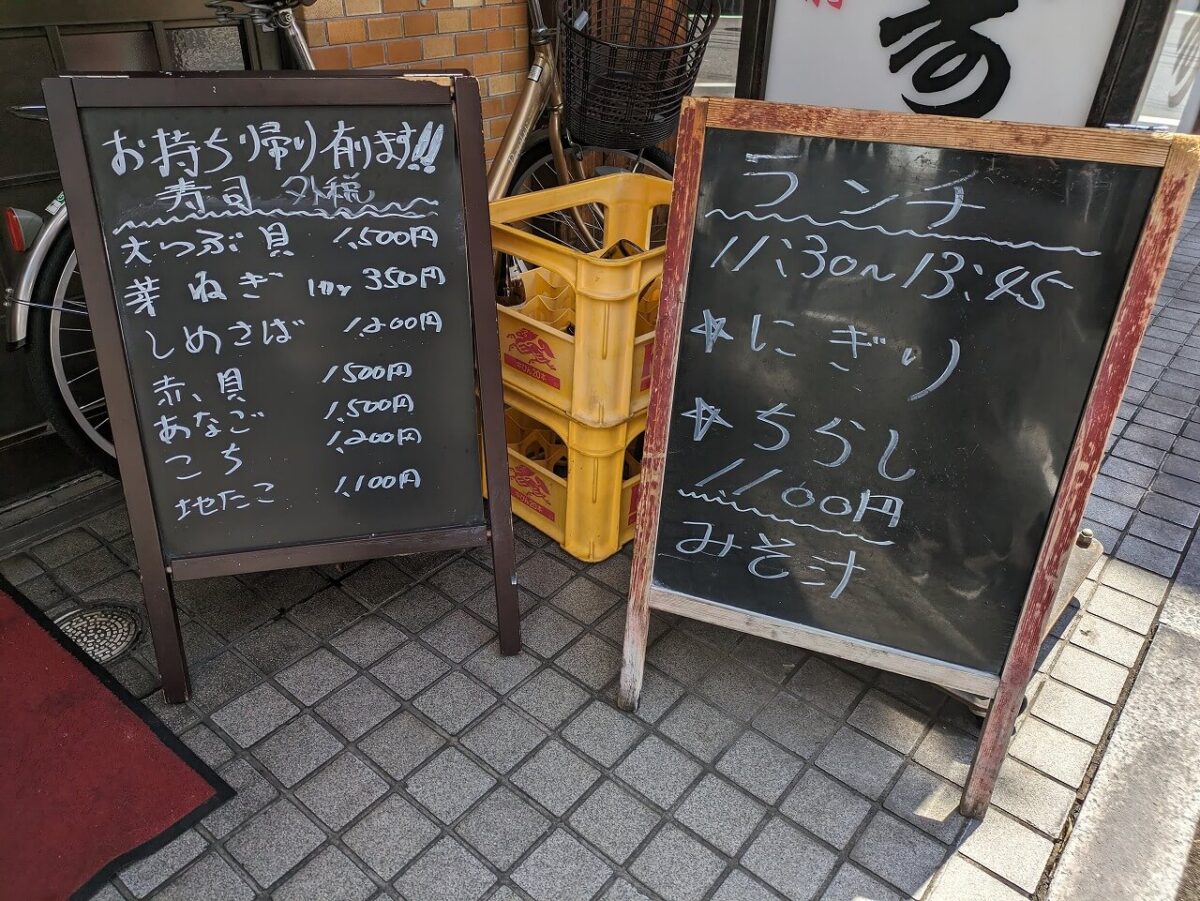 お持ち帰り有ります!!
寿司 外税
大つぶ貝 1,500円
芽ねぎ 1カン 350円
しめさば 1,200円
赤貝 1500円
あなご 1,500円
こち 1,200円
地たこ 1,100円
ランチ
11:30〜13:45
☆にぎり
☆ちらし
1,100円
みそ汁
きりん20本